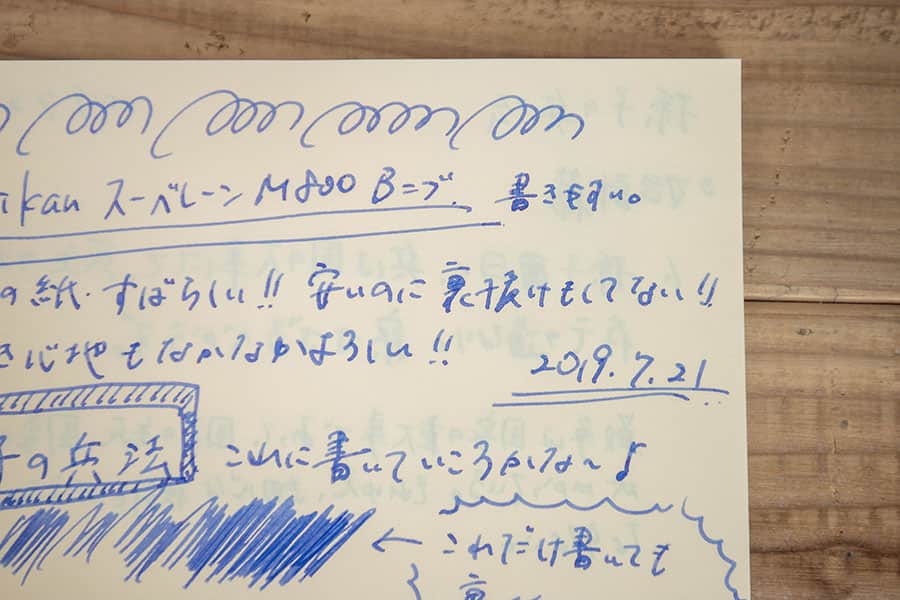 ikan スーベレーン M800 Bニブ. 書きやすい。
の紙・すばらしい!! 安いのに裏抜けもしてない!!
き心地もなかなかよろしい!!
2019.7.21
子の兵法 これに書いていころかな〜♪
← これだけ書いても
裏